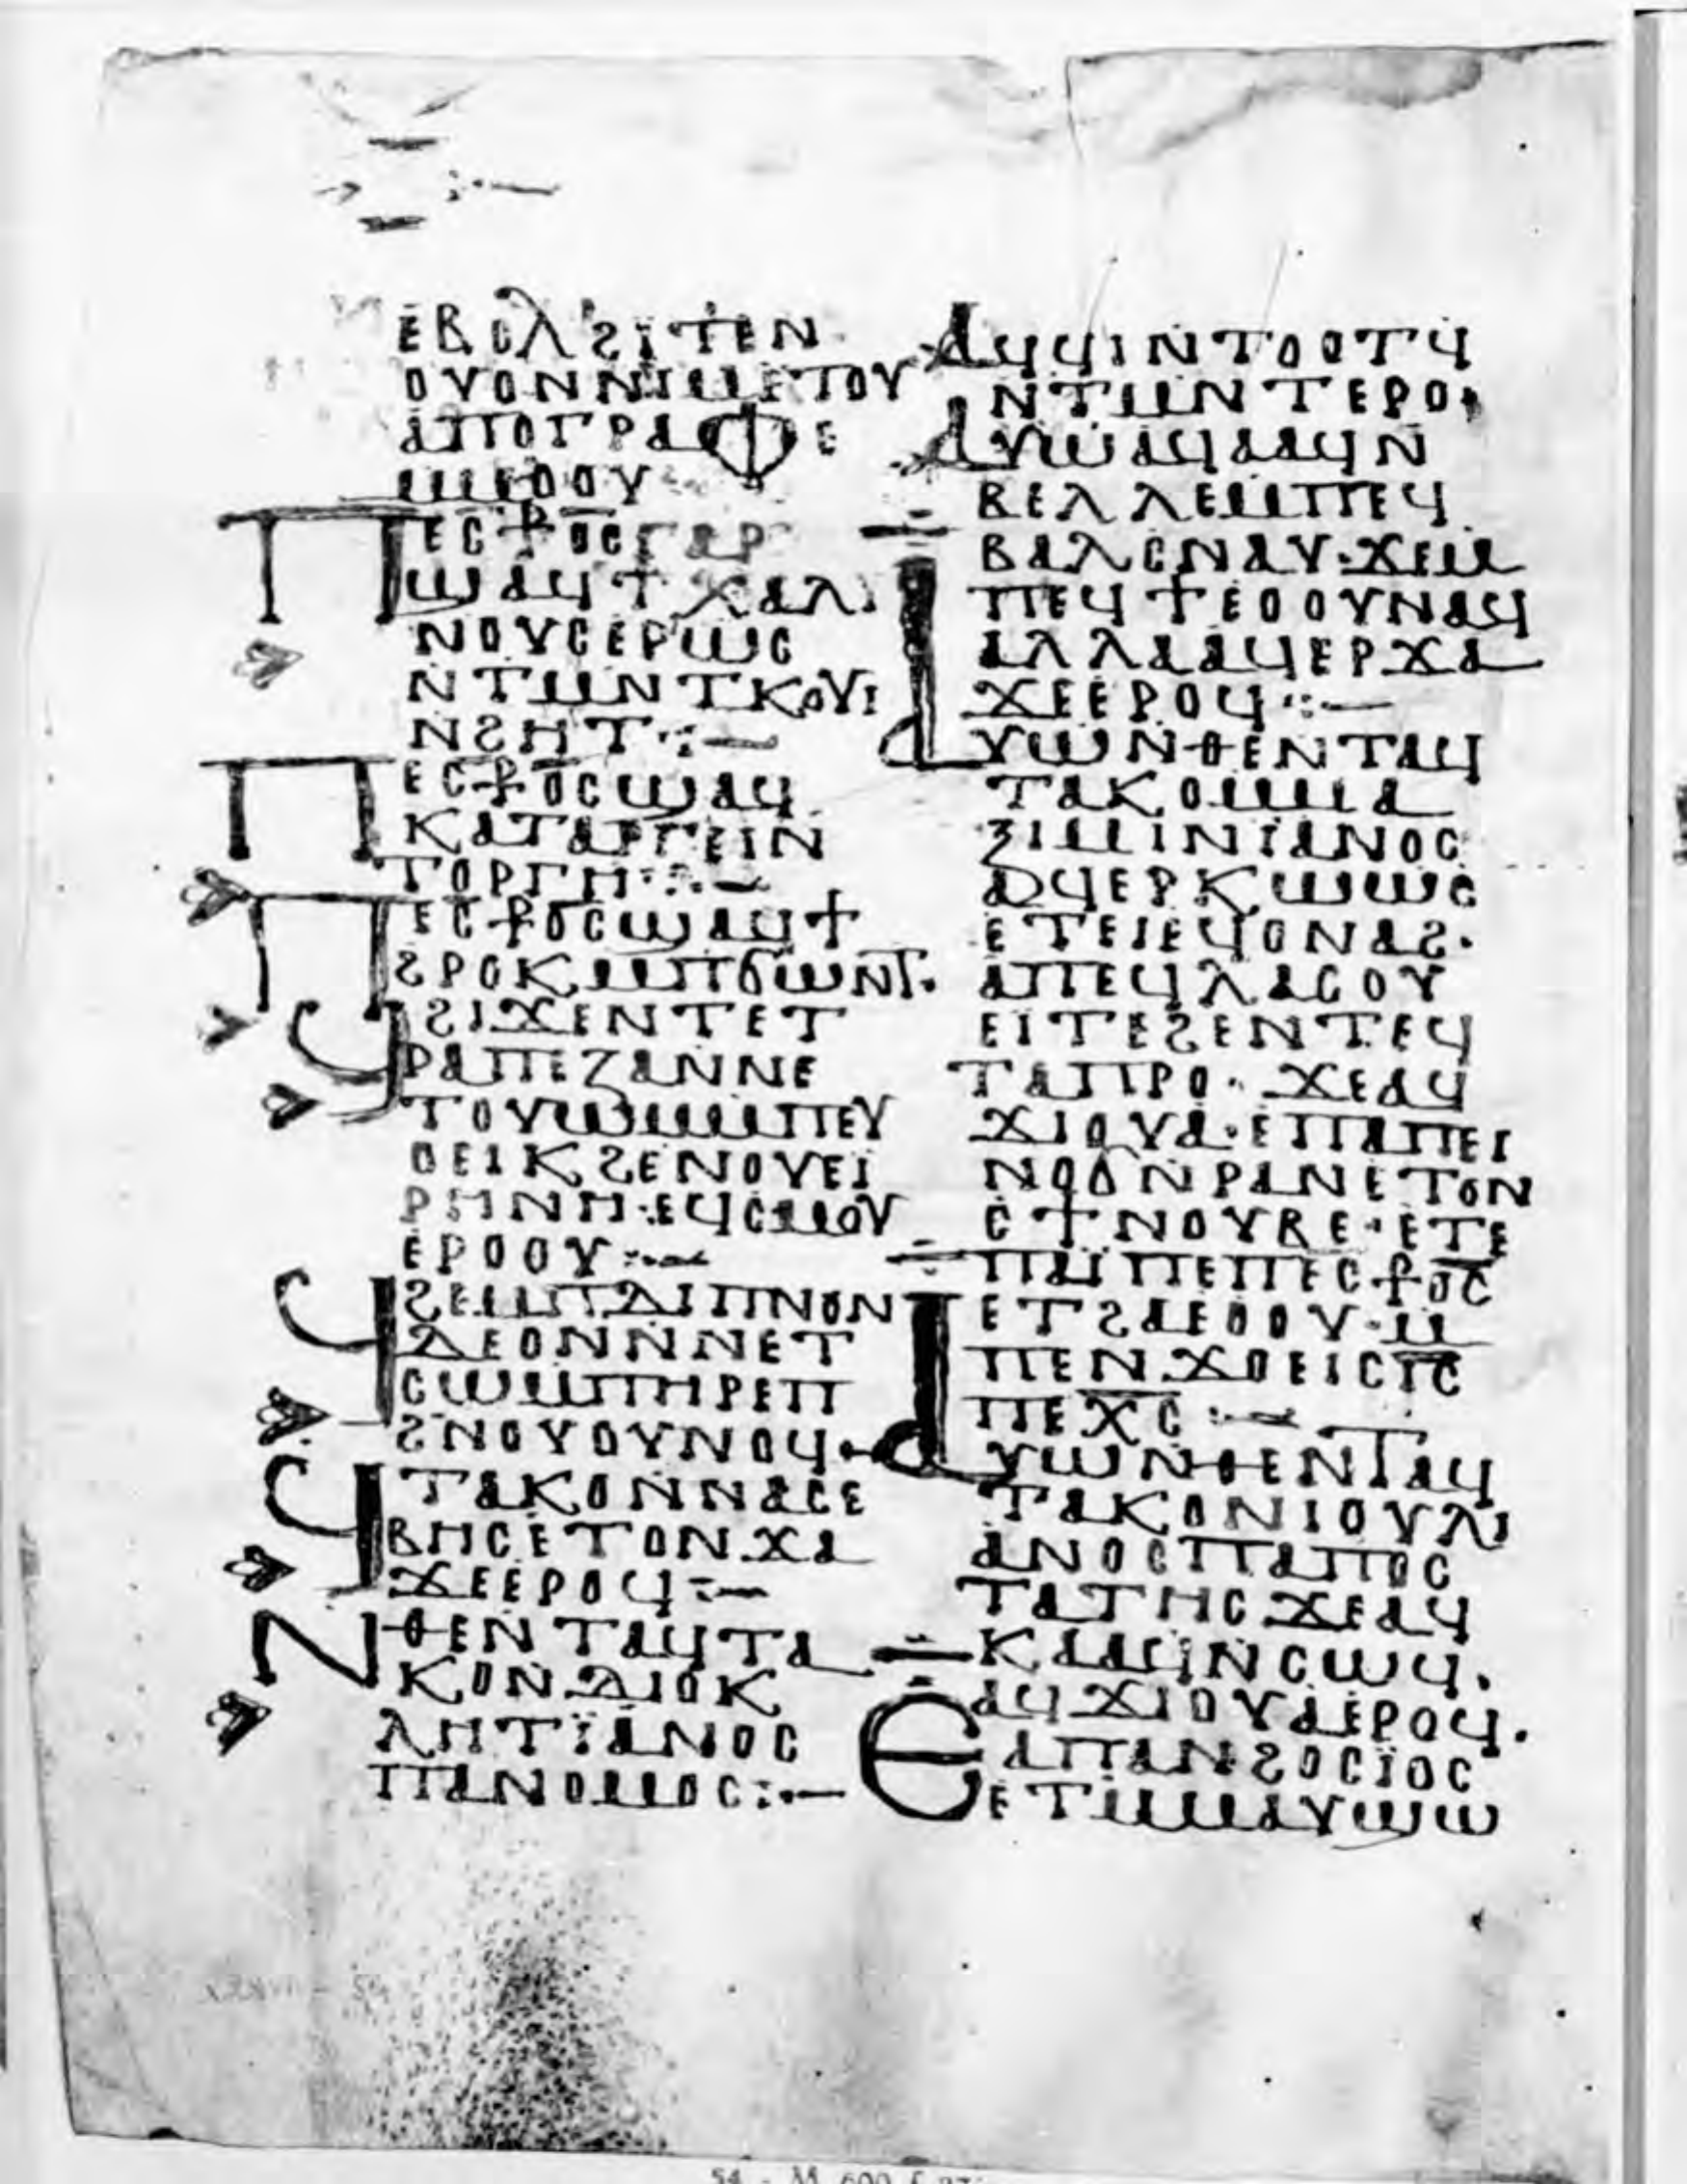 ⲉⲃⲟⲗϩⲓⲧⲉⲛ
ⲟⲩⲟⲛⲛⲓⲙⲉⲧⲟⲩ
ⲁⲡⲟⲅⲣⲁⲫⲉ
ⲙⲙⲟⲟⲩ
ⲡⲉⲥⲣⲟⲥⲅⲁⲣ
ϣⲁϥϯⲭⲁⲗⲓ
ⲛⲟⲩⲥⲉⲣⲱⲥ
ⲛⲧⲙⲛⲧⲕⲟⲩⲓ
ⲛϩⲏⲧ⁘—
ⲡⲉⲥⲣⲟⲥϣⲁϥ
ⲕⲁⲧⲁⲣⲅⲉⲓⲛ
ⲧⲟⲣⲅⲏ⁘—
ⲡⲉⲥⲣⲟⲥϣⲁϥϯ
ϩⲣⲟⲕⲙⲡϭⲱⲛⲧ·
ϥϩⲓϫⲉⲛⲧⲉⲧ
ⲣⲁⲡⲉⲍⲁⲛⲛⲉ
ⲧⲟⲩⲱⲙⲙⲡⲉⲩ
ⲟⲉⲓⲕϩⲉⲛⲟⲩⲉⲓ
ⲣⲏⲛⲏ·ⲉϥⲥⲙⲟⲩ
ⲉⲣⲟⲟⲩ⁘—
ϥϩⲉⲙⲡⲇⲓⲡⲛⲟⲛ
ⲇⲉⲟⲛⲛⲛⲉⲧ
ⲥⲱⲙⲡⲏⲣⲉⲡ
ϩⲛⲟⲩⲟⲩⲛⲟϥ·
ϥⲧⲁⲕⲟⲛⲛⲁⲥⲉ
ⲃⲏⲥⲉⲧⲟⲛϫⲁ
ϫⲉⲉⲣⲟϥ⁘—
ⲛⲑⲉⲛⲧⲁϥⲧⲁ
ⲕⲟⲛⲇⲓⲟⲕ
ⲗⲏⲧⲓ̈ⲁⲛⲟⲥ
ⲡⲁⲛⲟⲙⲟⲥ⁘—
ⲁϥϥⲓⲛⲧⲟⲟⲧϥ
ⲛⲧⲙⲛⲧⲉⲣⲟ·
ⲁⲩⲱⲁϥⲁⲁϥⲛ
ⲃⲉⲗⲗⲉⲙⲡⲉϥ
ⲃⲁⲗⲥⲛⲁⲩ·ϫⲉⲙ
ⲡⲉϥϯⲉⲟⲟⲩⲛⲁϥ
ⲁⲗⲗⲁⲁϥⲉⲣϫⲁ
ϫⲉⲉⲣⲟϥ⁘—
ⲁⲩⲱⲛⲑⲉⲛⲧⲁϥ
ⲧⲁⲕⲟⲙⲙⲁ
ⲝⲓⲙⲓⲛⲓⲁⲛⲟⲥ
ⲁϥⲉⲣⲕⲱⲱⲥ
ⲉⲧⲉⲓⲉϥⲟⲛⲁϩ·
ⲁⲡⲉϥⲗⲁⲥⲟⲩ
ⲉⲓⲧⲉϩⲉⲛⲧⲉϥ
ⲧⲁⲡⲣⲟ· ϫⲉⲁϥ
ϫⲓⲟⲩⲁ·ⲉⲡⲁⲡⲉⲓ
ⲛⲟϭⲛⲣⲁⲛⲉⲧⲟⲛ
ⲥϯⲛⲟⲩⲃⲉ·ⲉⲧⲉ
ⲡⲁⲓ̈ⲡⲉⲡⲉⲥⲣⲟⲥ
ⲉⲧϩⲁⲉⲟⲟⲩ·ⲙ
ⲡⲉⲛϫⲟⲉⲓⲥⲓⲥ
ⲡⲉⲭⲥ⁘—
ⲁⲩⲱⲛⲑⲉⲛⲧⲁϥ
ⲧⲁⲕⲟⲛⲓⲟⲩⲗⲓ
ⲁⲛⲟⲥⲡⲁⲡⲟⲥ
ⲧⲁⲧⲏⲥϫⲉⲁϥ
ⲕⲁⲁϥⲛⲥⲱϥ·
ⲁϥϫⲓⲟⲩⲁⲉⲣⲟϥ·
ⲉⲁⲡⲁⲛϩⲟⲥⲓ̈ⲟⲥ
ⲉⲧⲙⲙⲁⲩϣⲱ